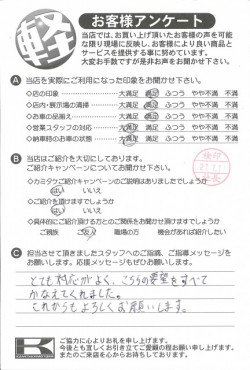 軽
お客様アンケート
当店では、お買い上げ頂いたお客様の声を可能
な限り現場に反映し、お客様により良い商品と
サービスを提供する事に努めています。
大変お手数ですが是非お声をお聞かせ下さい。
A 当店を実際にご利用になった印象をお聞かせ下さい。
◇店の印象 大満足 満足 ふつう やや不満 不満
◇店内・展示場の清掃 大満足 満足 ふつう やや不満 不満
◇お車の品揃え 大満足 満足 ふつう やや不満 不満
◇営業スタッフの対応 大満足 満足 ふつう やや不満 不満
◇納車時のお車の状態 大満足 満足 ふつう やや不満 不満
B 当店はご紹介を大切にしております。
ご紹介キャンペーンについてお聞かせ下さい。
◇カミタケご紹介キャンペーンのご説明はありましたでしょうか
はい いいえ
◇ご紹介を頂けますでしょうか
はい いいえ
◇具体的にご紹介頂ける方とのご関係をお聞かせ頂けますでしょうか
ご親戚 ご友人 職場の方 機会があれば紹介したい
C 担当させて頂きましたスタッフへのご指摘、ご指導メッセージを
お願いします。応援メッセージもぜひお聞かせ下さい。
とても対応がよく、こちらの要望をすべて
かなえてくれました。
これからもよろしくお願いします。
K
ご協力に心よりお礼を申し上げます。
今後とも宜しくお引き立てご愛顧の程お願い申し上げます。
またのご来店を心からお待ちしております。